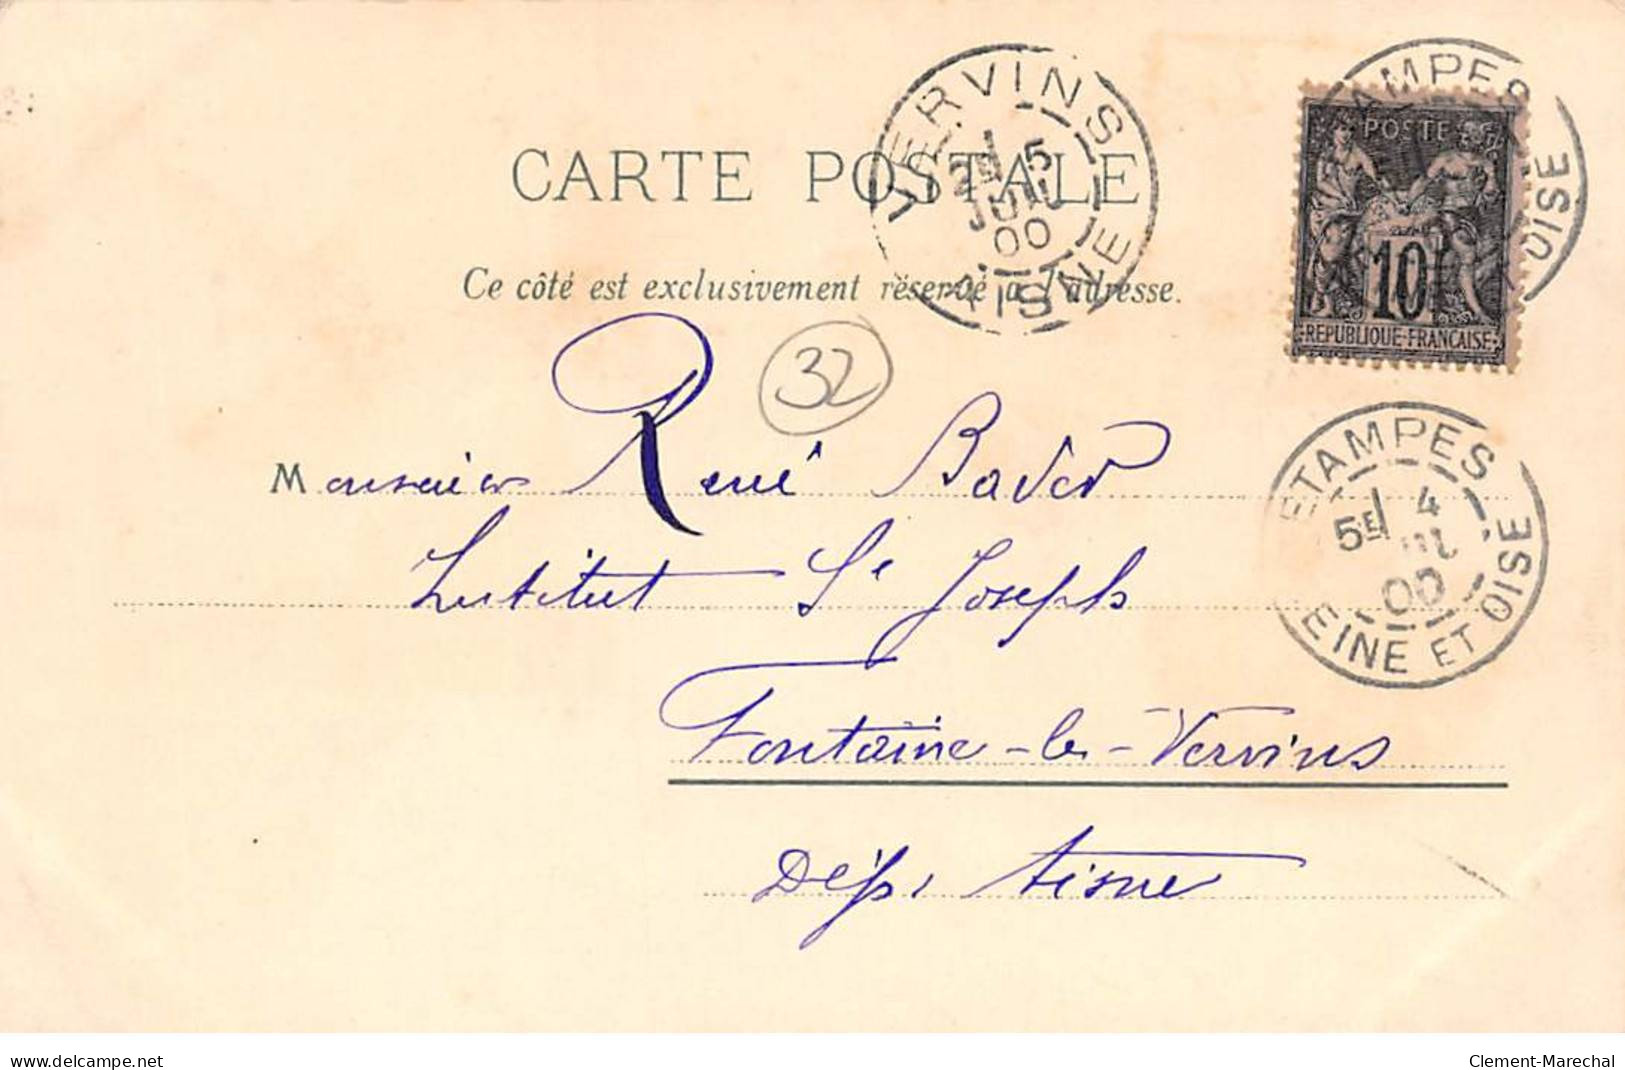 CARTE POSTALE
Ce côté est exclusivement réservé à l'adresse.
VERVINS
2E 5
JUIL
00
AISNE
ETAMPES
OISE
POSTES
10
REPUBLIQUE-FRANCAISE
32
Monsieur René Bader
Institut St Joseph
Fontaine-les-Vervins
Dép. Aisne
ETAMPES
5E 4
JUIL
00
SEINE ET OISE
www.delcampe.net
Clement-Marechal